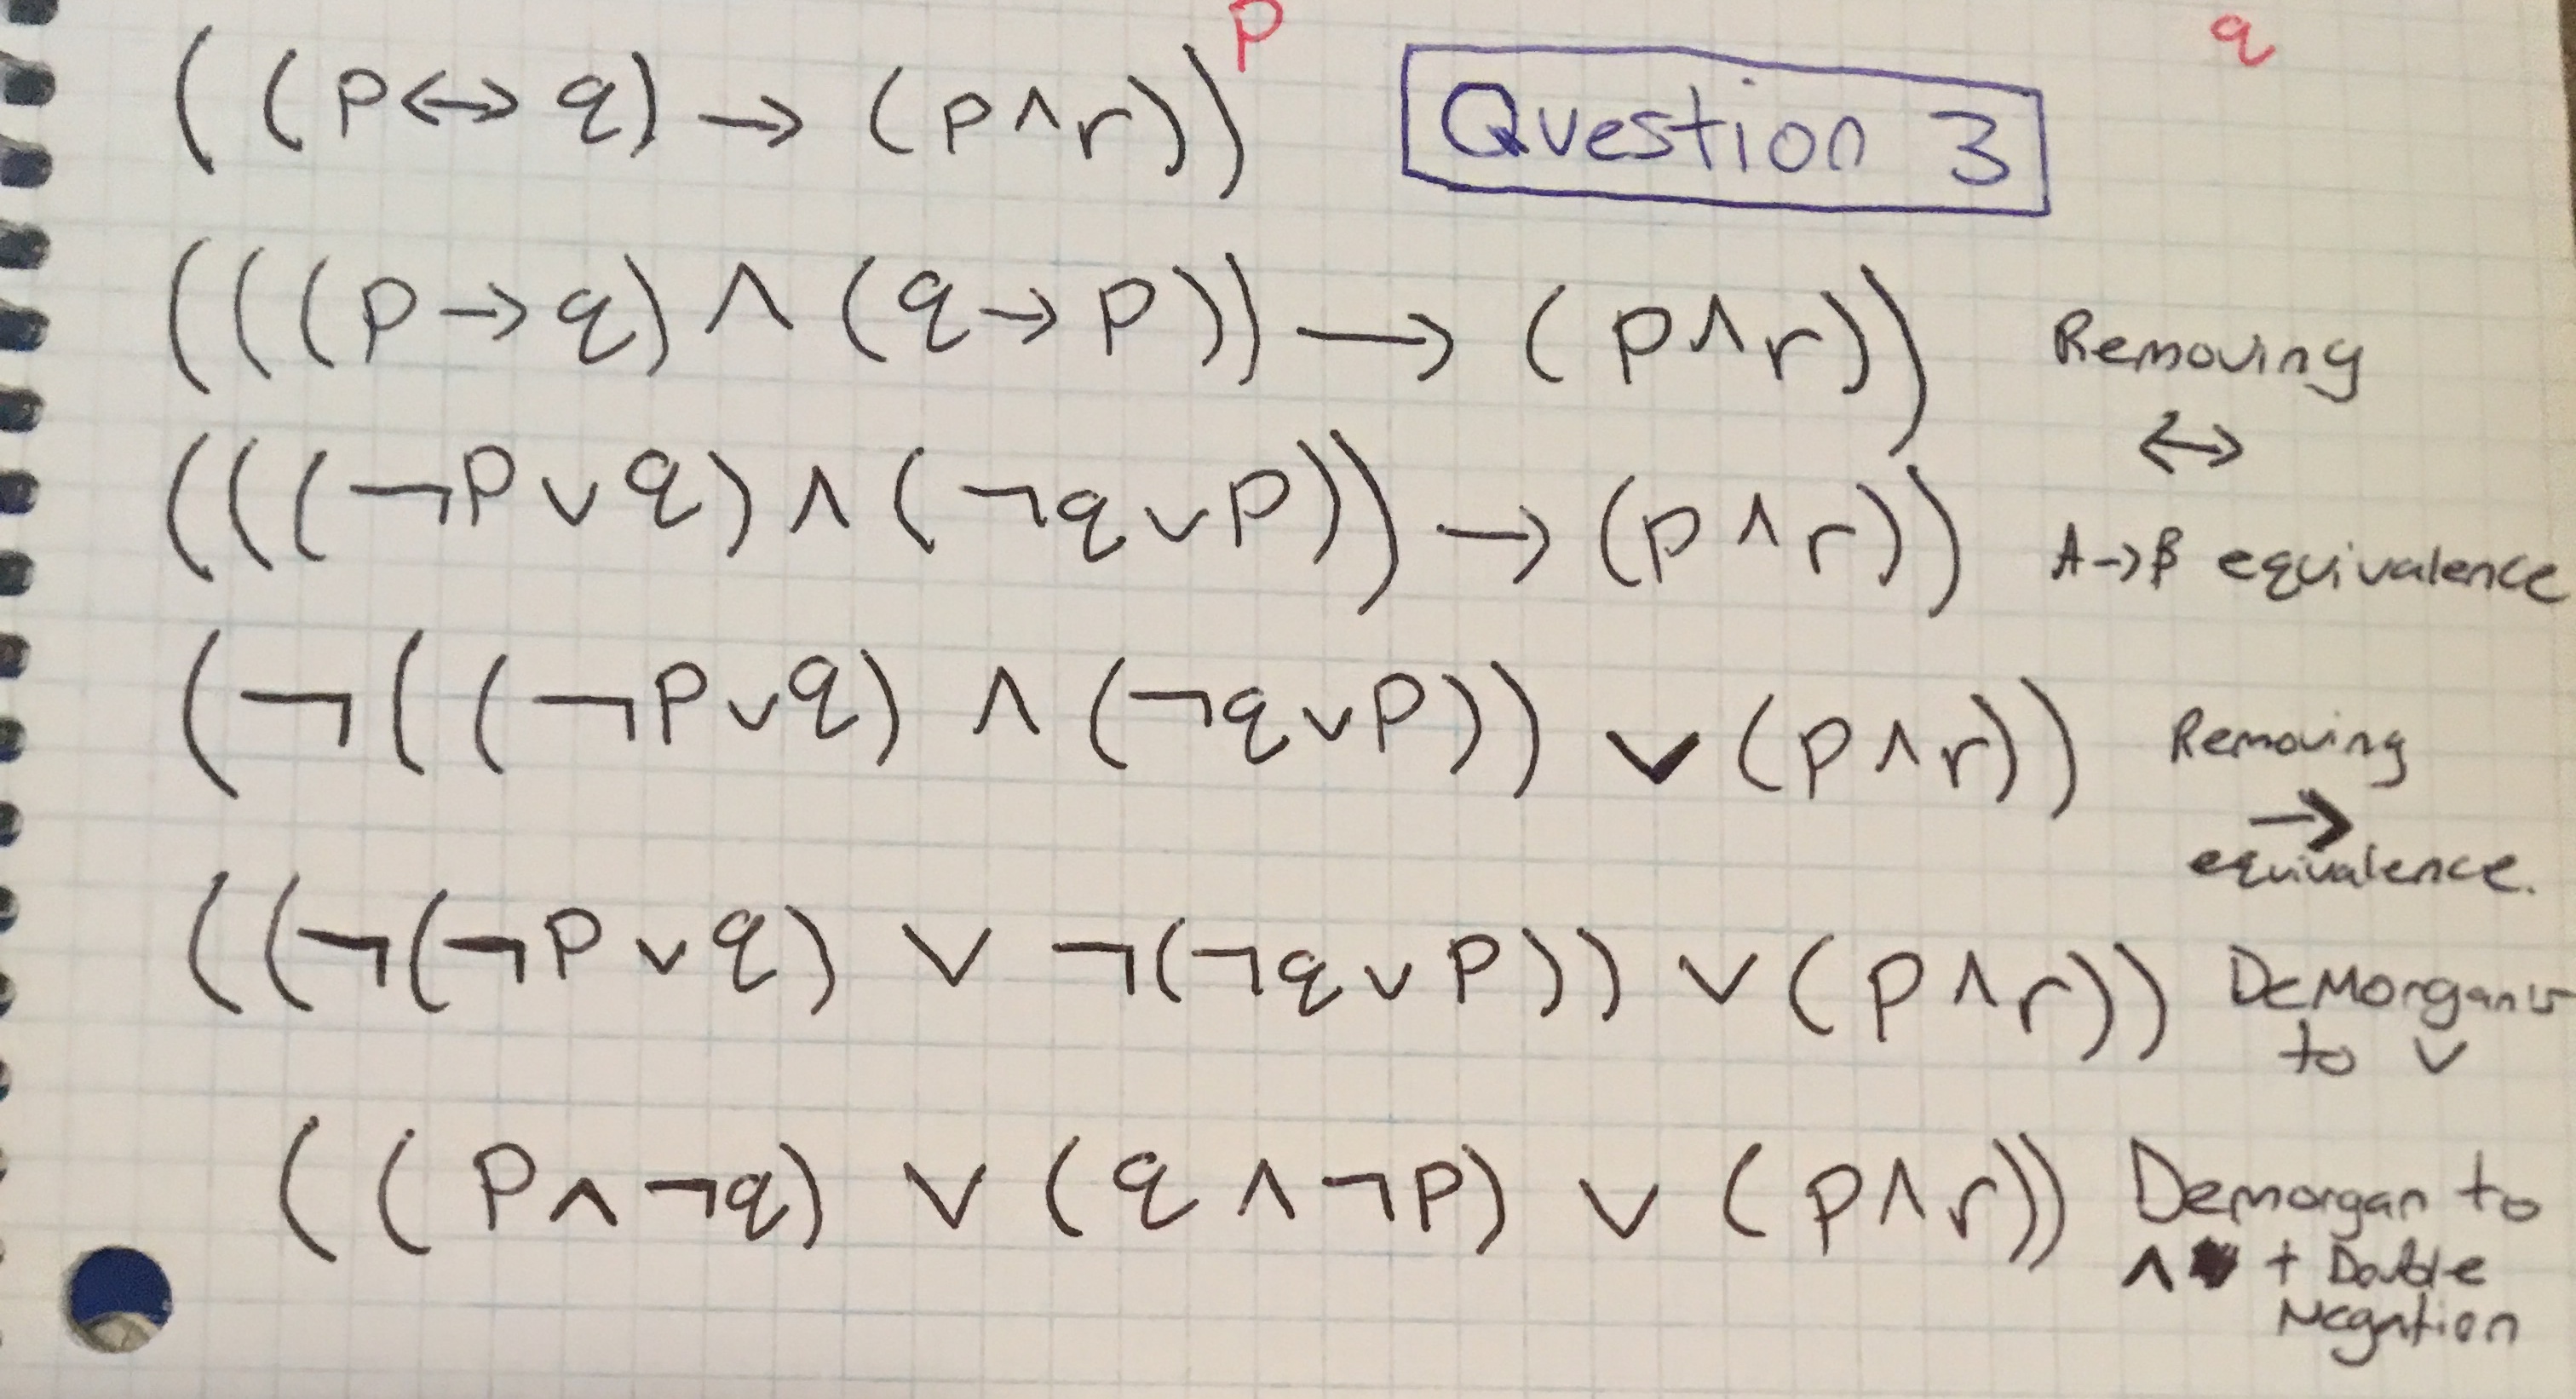 p q
((p↔q) → (p∧r)) Question 3
(((p→q) ∧ (q→p)) → (p∧r)) Removing
↔
(((¬p∨q) ∧ (¬q∨p)) → (p∧r)) A→B equivalence
(¬((¬p∨q) ∧ (¬q∨p)) ∨ (p∧r)) Removing
→
equivalence.
((¬(¬p∨q) ∨ ¬(¬q∨p)) ∨ (p∧r)) DeMorgan's
to ∨
((p∧¬q) ∨ (q∧¬p) ∨ (p∧r)) Demorgan to
∧ + Double
Negation